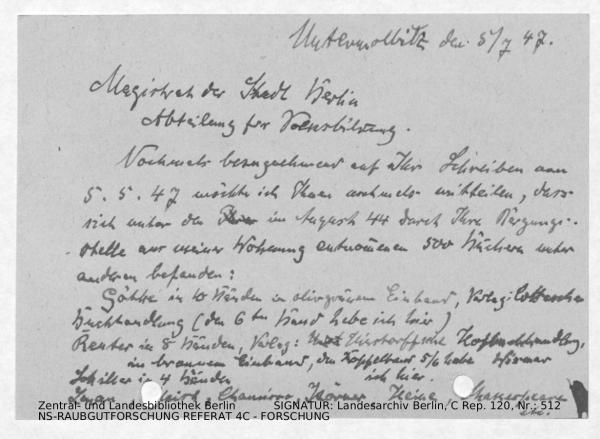 Unterwellitz den 5/7 47.
Magistrat der Stadt Berlin
Abteilung für Volksbildung.
Nochmals bezugnehmend auf Ihr Schreiben vom
5. 5. 47 möchte ich Ihnen nochmals mitteilen, dass
sich unter den im August 44 durch Ihre Bergungs-
stelle aus meiner Wohnung entnommenen 500 Büchern unter
anderen befanden:
Göthe in 10 Bänden in olivgrünem Einband, Verlag: Cottasche
Buchhandlung (den 6ten Band habe ich hier)
Reuter in 8 Bänden, Verlag: Hinstorffsche Hofbuchhandlg,
in braunem Einband, den Doppelband 5/6 habe Wismar
Schiller in 4 Bänden ich hier.
Chamisso, Körner, Heine, Shakespeare
etc.
Zentral- und Landesbibliothek Berlin SIGNATUR: Landesarchiv Berlin, C Rep. 120, Nr.: 512
NS-RAUBGUTFORSCHUNG REFERAT 4C - FORSCHUNG